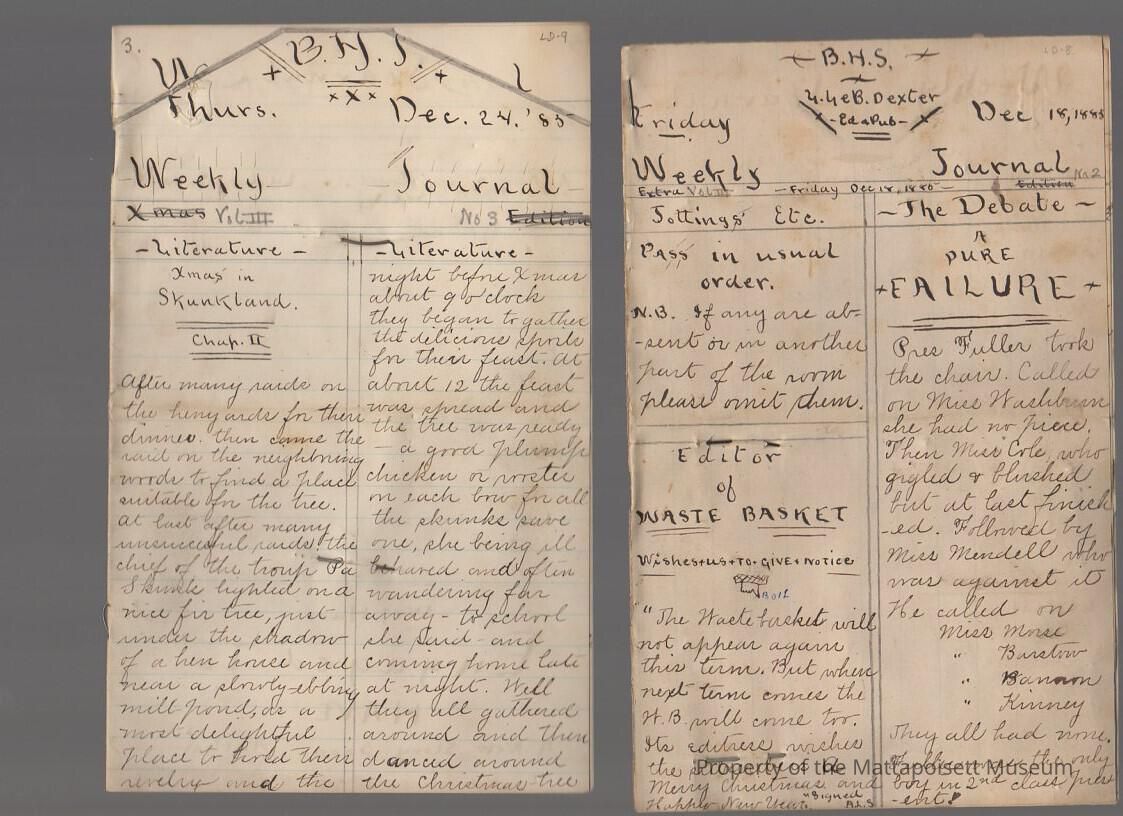 3.
LD-9
B.H.S.
+ +
x x x
Thurs.
Dec. 24. '85
Weekly Journal
Xmas Vol III
No 3 Edition
-Literature-
Xmas in
Skunkland.
Chap. II
After many raids on
the henyards for their
dinner. then came the
raid on the neighboring
woods to find a place
suitable for the tree.
at last after many
unsuccessful raids the
chief of the troup Pa
Skunk lighted on a
nice fir tree, just
under the shadow
of a hen house and
near a slowly-ebbing
mill pond, as a
most delightful
place to hold their
revelry and the
-Literature-
night before Xmas
about 9 o'clock
they began to gather
the delicious spoils
for their feast. At
about 12 the feast
was spread and
the tree was ready
- a good plump
chicken or rooster
on each bow for all
the skunks save
one, she being ill
behaved and often
wandering far
away - to school
she said - and
coming home late
at night. Well
they all gathered
around and then
danced around
the Christmas-tree
LD-8
B.H.S.
B. Dexter
-Ed & Pub-
Friday
Dec 18, 1885
Weekly Journal
Extra Vol III
-Friday Dec 18, 1885-
Edition No 2
Jottings Etc.
Pass in usual
order.
N.B. If any are ab-
-sent or in another
part of the room
please omit them.
Editor
of
WASTE BASKET
Wishes+us+TO+GIVE+Notice
"The Waste basket will
not appear again
this term. But when
next term comes the
W.B. will come too.
Its editress wishes
the
Merry Christmas and
Happy New Year. "Signed
A.L.S
~The Debate~
A
PURE
+FAILURE+
Pres Fuller took
the chair. Called
on Miss Washburn
she had no piece.
Then Miss Cole, who
gigled & blushed
but at last finish
-ed. Followed by
Miss Mendell who
was against it
He called on
Miss Morse
" Barstow
" Bannon
" Kinney
They all had none.
the only
boy in 2nd class pres
-ent!
Property of the Mattapoisett Museum